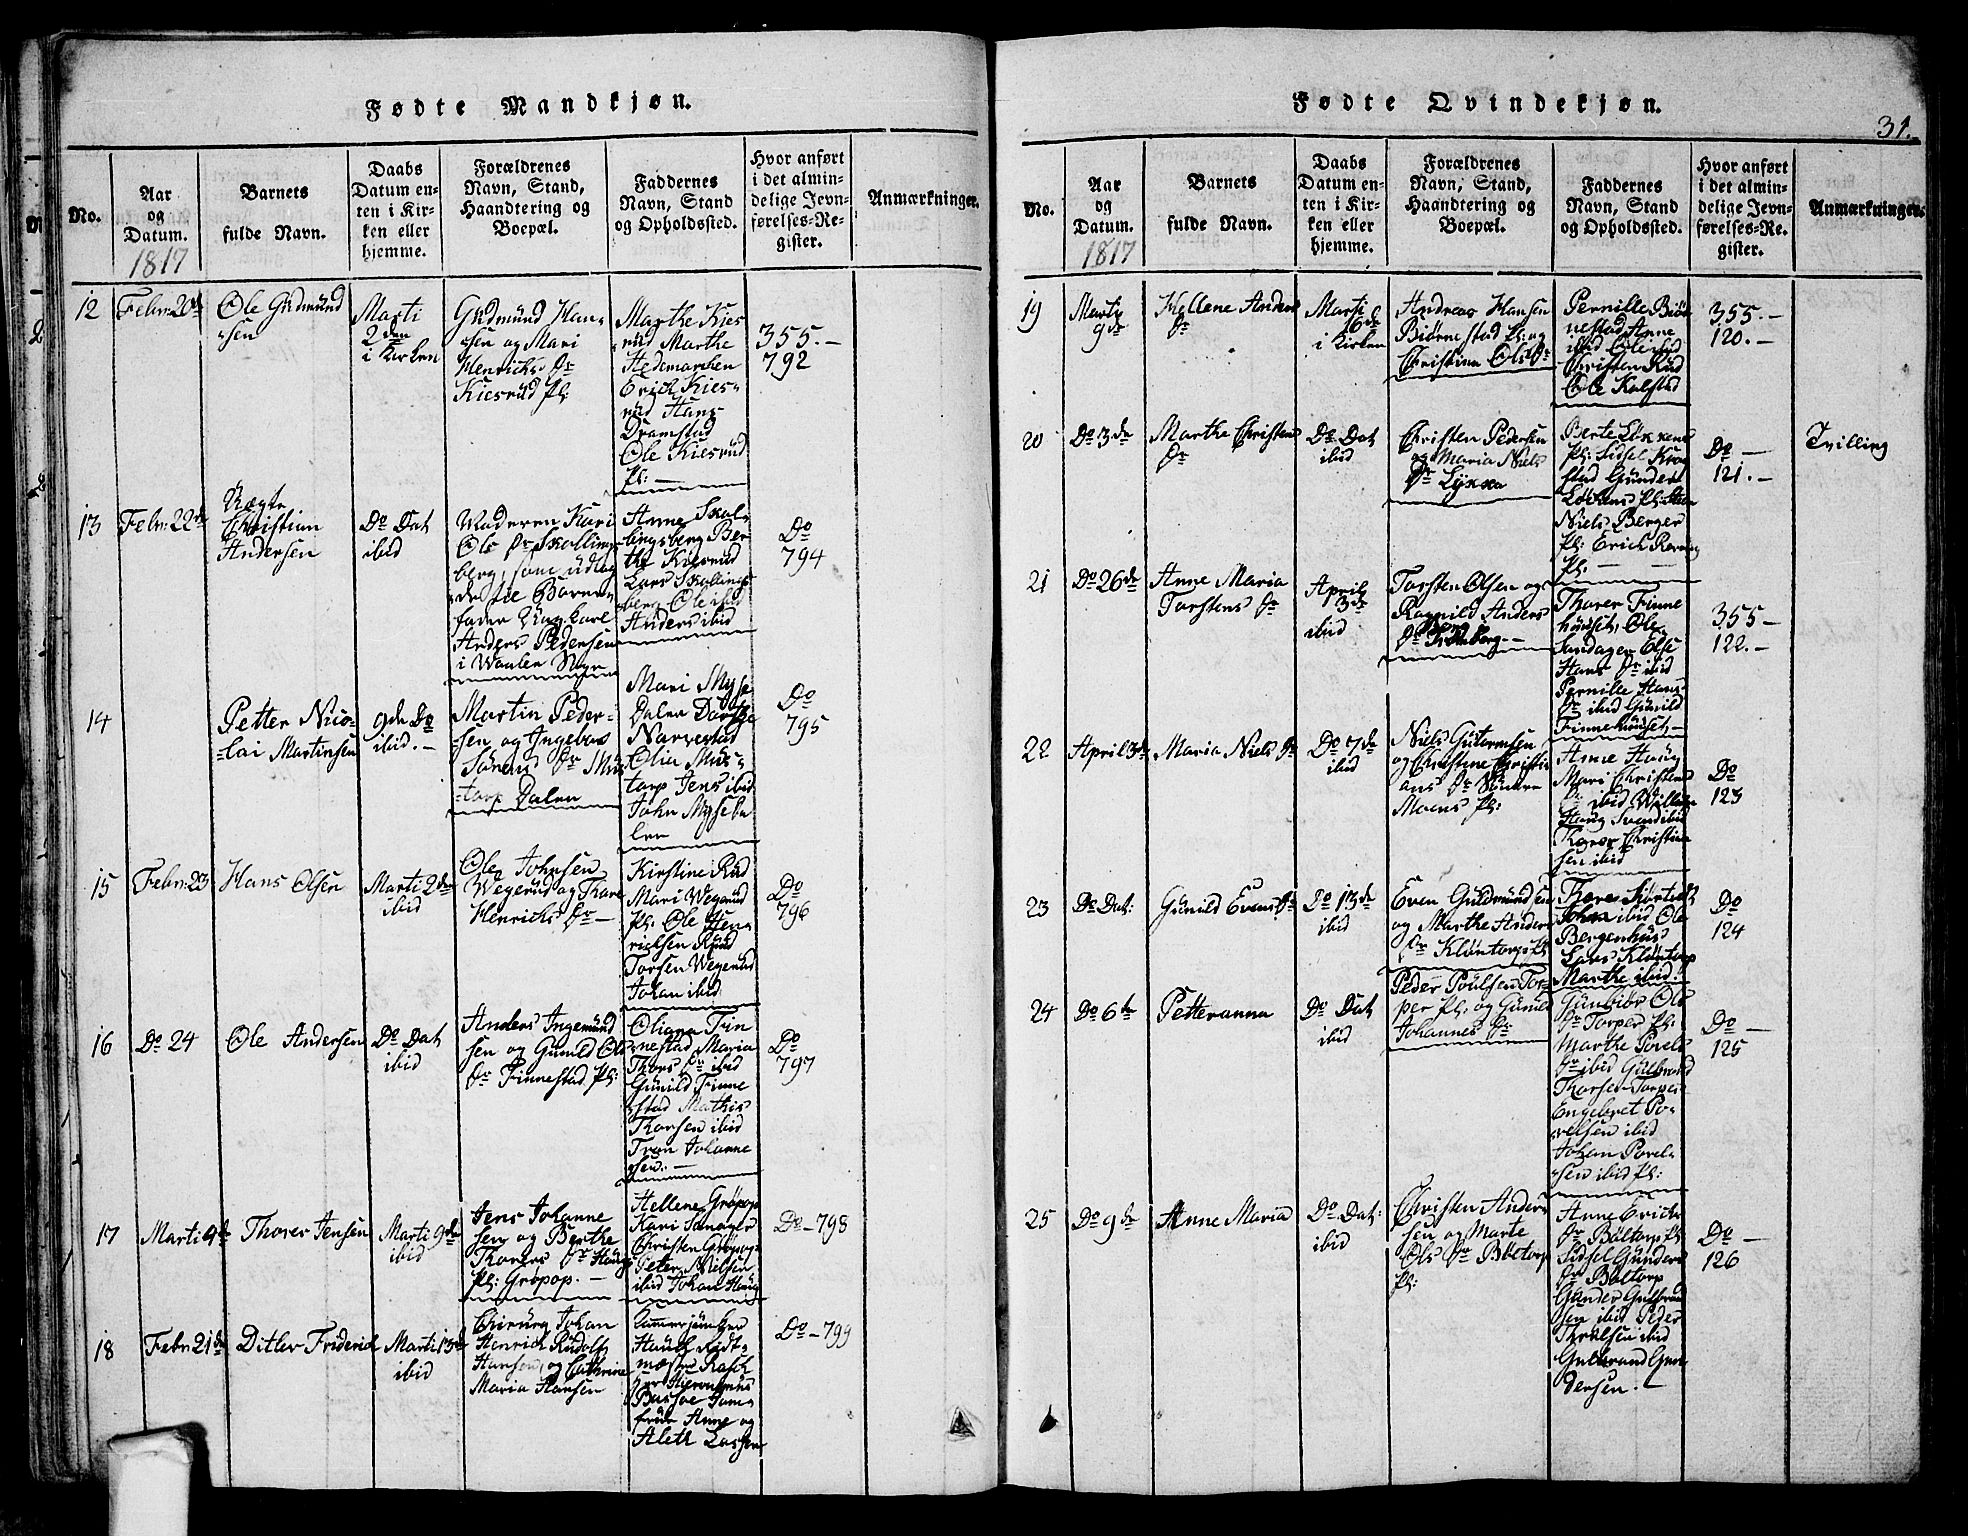 Fødte Mandkjøn.
No.
Aar
og
Datum.
1817
Barnets
fulde Navn.
Daabs
Datum en-
ten i Kir-
ken eller
hjemme.
Forældrenes
Navn, Stand,
Haandtering og
Boepæl.
Faddernes
Navn, Stand
og Opholdssted.
Hvor anført
i det almin-
delige Jevn-
førelses-Re-
gister.
Anmærkninger.
12
Febr: 20de
Ole Gudmund
sen
Marti
2den
i Kirken
Gudmund Han-
sen og Mari
Henrichs Dr
Kiesrud Pl:
Marthe Kies
rud Marthe
Hedemarchen
Erich Kies-
rud Hans
Dramstad
Ole Kiesrud
Pl: —
355.—
792
13
Febr: 22de
Uægte
Christian
Andersen
Do Dat
ibid
Moderen Kari
Ols Dr Skollings
berg, som udlag
de til Barne-
fader Ungkarl
Anders Pedersen
i Waaler Sogn
Anne Skol-
lingsberg Ber
the Kiesrud
Lars Skollings
berg Ole ibid
Anders ibid
Do
794
14
Petter Nico-
lai Martinsen
9de Do
ibid.—
Martin Peder-
sen og Ingebor
Sørens Dr Mus
torp Dalen
Mari Myse
Dalen Dorthe
Narvestad
Olia Mus-
torp Jens ibid
John Myseda
len
Do
795
15
Febr: 23
Hans Olsen
Marti 2den
ibid
Ole Johnsen
Wegerud og Thore
Henrichs Dr —
Kirstine Rud
Mari Wegerud
Pl: Ole Hen-
richsen Rud
Torsen Wegerud
Johan ibid
Do
796
16
Do 24
Ole Andersen
Do Dat
ibid
Anders Ingemund
sen og Gunild Ols
Dr Finnestad Pl:
Oliana Fin
nestad Maria
Thors Dr ibid
Gunild Finne
stad Mathis
Thorsen ibid
Tron Johanne
sen. —
Do
797
17
Marti 9de
Thorer Jensen
Marti 9de
ibid
Jens Johanne
sen og Berthe
Thorers Dr Haug
Pl: Grøpop. —
Hellene Grøpop
Kari Sandager
Christen Grøpop
Peter Nielsen
ibid Johan Haug
Do — 798
18
Febr: 21de
Ditlev Friderich
Marti 13de
ibid
Chirurg Johan
Henrich Rudolf
Hansen, og Cathrine
Maria Hansen
Cammerjunker
Hauch Ridt-
mester Rasch
Hr Hieronimus
Bassøe Jom-
frue Anne og
Aleth Lassen
Do — 799
Fødte Qvindekjøn.
31.
No.
Aar
og
Datum.
1817
Barnets
fulde Navn.
Daabs
Datum en-
ten i Kir-
ken eller
hjemme.
Forældrenes
Navn, Stand,
Haandtering og
Boepæl.
Faddernes
Navn, Stand
og Opholdssted.
Hvor anført
i det almin-
delige Jevn-
førelses-Re-
gister.
Anmærkninger.
19
Marti
9de
Hellene Anders
Dr
Marti
16de
i Kirken
Andreas Hansen
Biørnestad Pl: og
Christina Ols Dr
Pernille Biør
nestad Anne
ibid Ole ibid
Christen Rud
Ole Kolstad
355.—
120.—
20
Do 3de
Marthe Christens
Dr
Do Dat
ibid
Christen Pedersen
og Maria Niels
Dr Løkka
Berte Løkkens
Pl: Sidsel Krog
stad Gunder
Løkkens Pl:
Niels Berger
Pl: Erich
Pl: — —
Do —
121.—
Tvilling
21
Do 26de
Anne Maria
Torstens Dr
April
3de
ibid
Torsten Olsen og
Ragnild Anders
Dr
Thorer Finne
hüuset, Ole
Sandager Else
Hans Dr ibid
Pernille Hans
Dr ibid Gunild
Finnehüuset —
355—
122.—
22
April 3de
Maria Niels Dr
Do 7de
ibid
Niels Gutormsen
og Christine Christi
ans Dr Søndre
Moens Pl:
Anne Haug
Mari Christens
Dr ibid Willum
Haug Svend ibid
Thorer Christian
sen ibid
Do
123
23
Do Dat:
Gunild Evens Dr
Do 13de
ibid
Even Guldmundsen
og Marthe Anders
Dr Kløntorps Pl
Thore
John ibid Ole
Bergenhus
Lars Kløntorp
Marthe ibid.
Do
124
24
Do 6te
Petteranna
Do Dat
ibid
Peder Poulsen Tor-
per Pl: og Gunild
Johannes Dr
Gunbiør Ols
Dr Torper Pl:
Marthe Povels
Dr ibid Gulbrand
Thorsen Torper
Engebret Po-
velsen ibid
Johan Povel-
sen ibid Pl:
Do —
125
25
Do 9de
Anne Maria
Do Dat:
ibid
Christen Ander-
sen og Marte
Ols Dr Böltorp
Pl:
Anne Erichs
Dr Böltorp Pl
Sidsel Gunders
Dr Böltorp
Gunder Gulbrand
sen ibid Peder
Thrulsen ibid
Gulbrand Gun
dersen. —
Do —
126